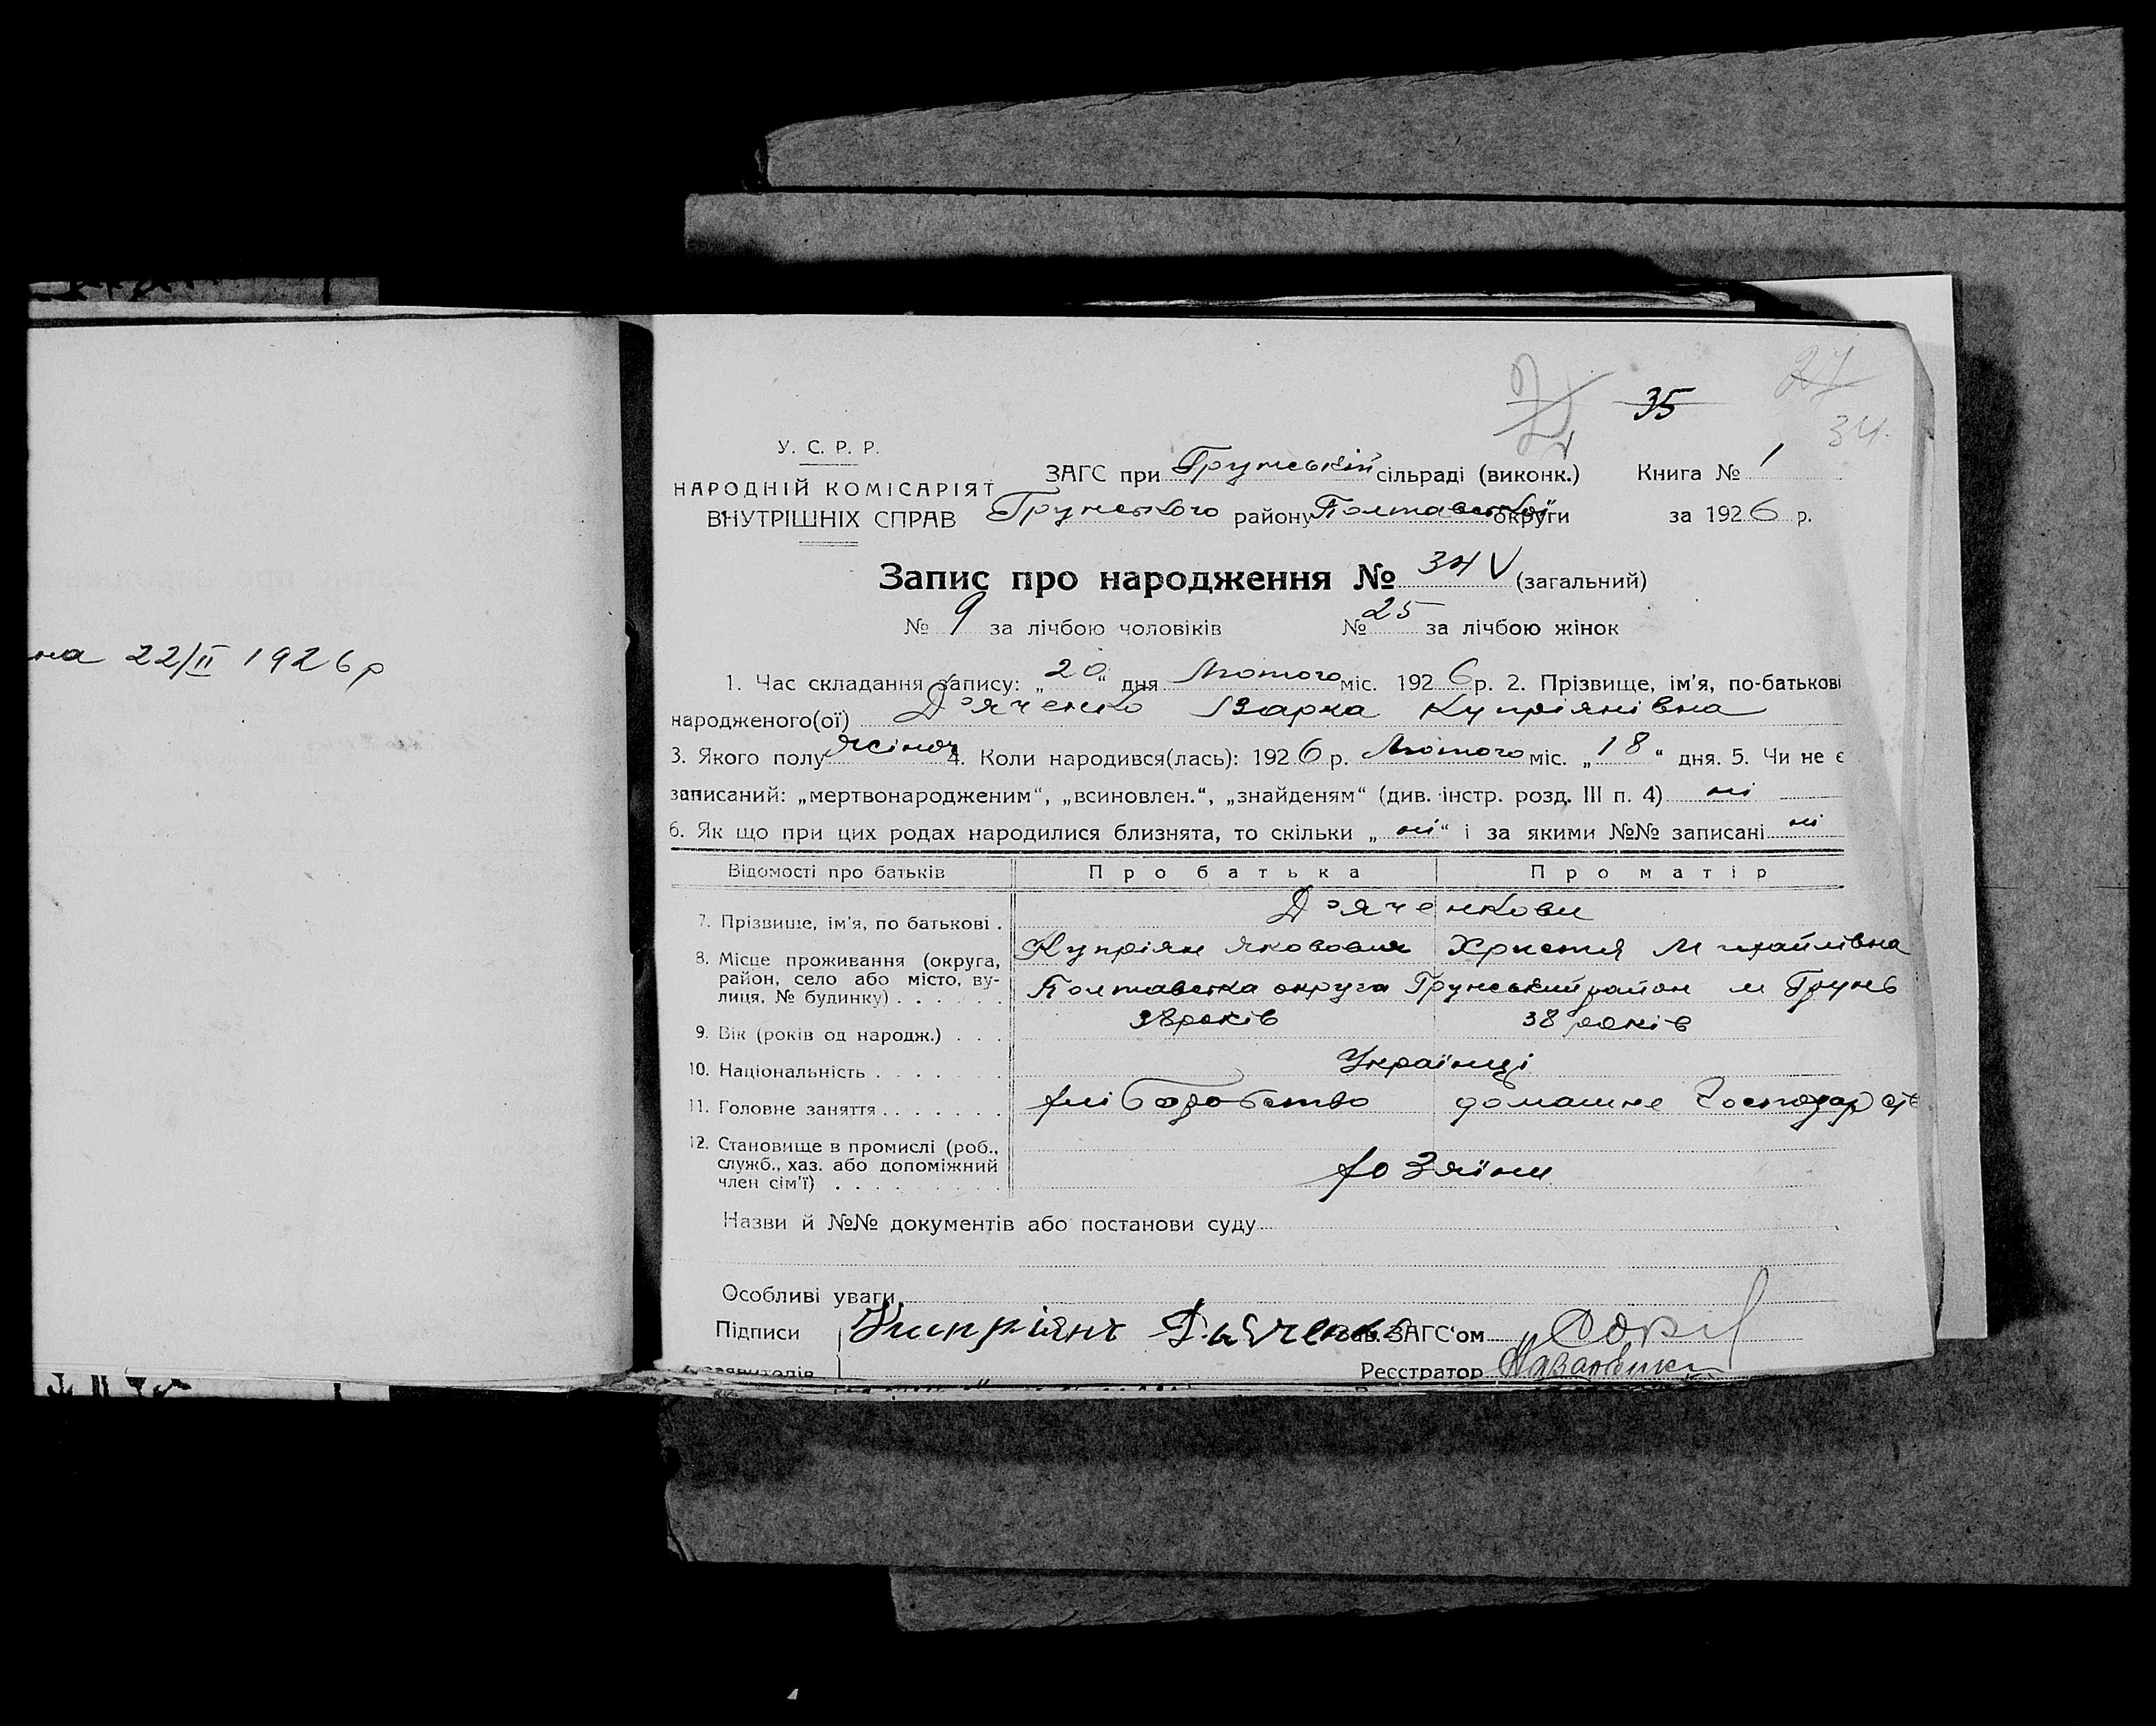 на 22/II 1926 р
35
27
34.
У. С. Р. Р.
НАРОДНІЙ КОМІСАРІЯТ
ВНУТРІШНІХ СПРАВ
ЗАГС при Грунській сільраді (виконк.) Книга № 1
Грунського району Полтавської округи за 1926 р.
Запис про народження № 34 V (загальний)
№ 9 за лічбою чоловіків № 25 за лічбою жінок
1. Час складання запису: „20“ дня Лютого міс. 1926 р. 2. Прізвище, ім'я, по-батькові
народженого(ої) Д'яченко Варка Купріянівна
3. Якого полу жіноч 4. Коли народився(лась): 1926 р. Лютого міс. „18“ дня. 5. Чи не є
записаний: „мертвонародженим“, „всиновлен.“, „знайденям“ (див. інстр. розд. III п. 4) ні
6. Як що при цих родах народилися близнята, то скільки „ні“ і за якими №№ записані ні
Відомості про батьків Про батька Про матір
7. Прізвище, ім'я, по батькові . Д'яченкови
Купріян Якович Христя Михайлівна
8. Місце проживання (округа,
район, село або місто, ву-
лиця, № будинку) . . . . . . Полтавська округа Грунський район м Грунь
9. Вік (років од народж.) . . . 38 років 38 років
10. Національність . . . . . . . Українці
11. Головне заняття . . . . . . . хліборобство домашнє господарств
12. Становище в промислі (роб.,
служб., хаз. або допоміжний
член сім'ї) . . . . . . . . . хозяїни
Назви й №№ документів або постанови суду
Особливі уваги
Підписи Куприянъ Дяченко Зав. ЗАГС'ом
заявителів Реєстратор